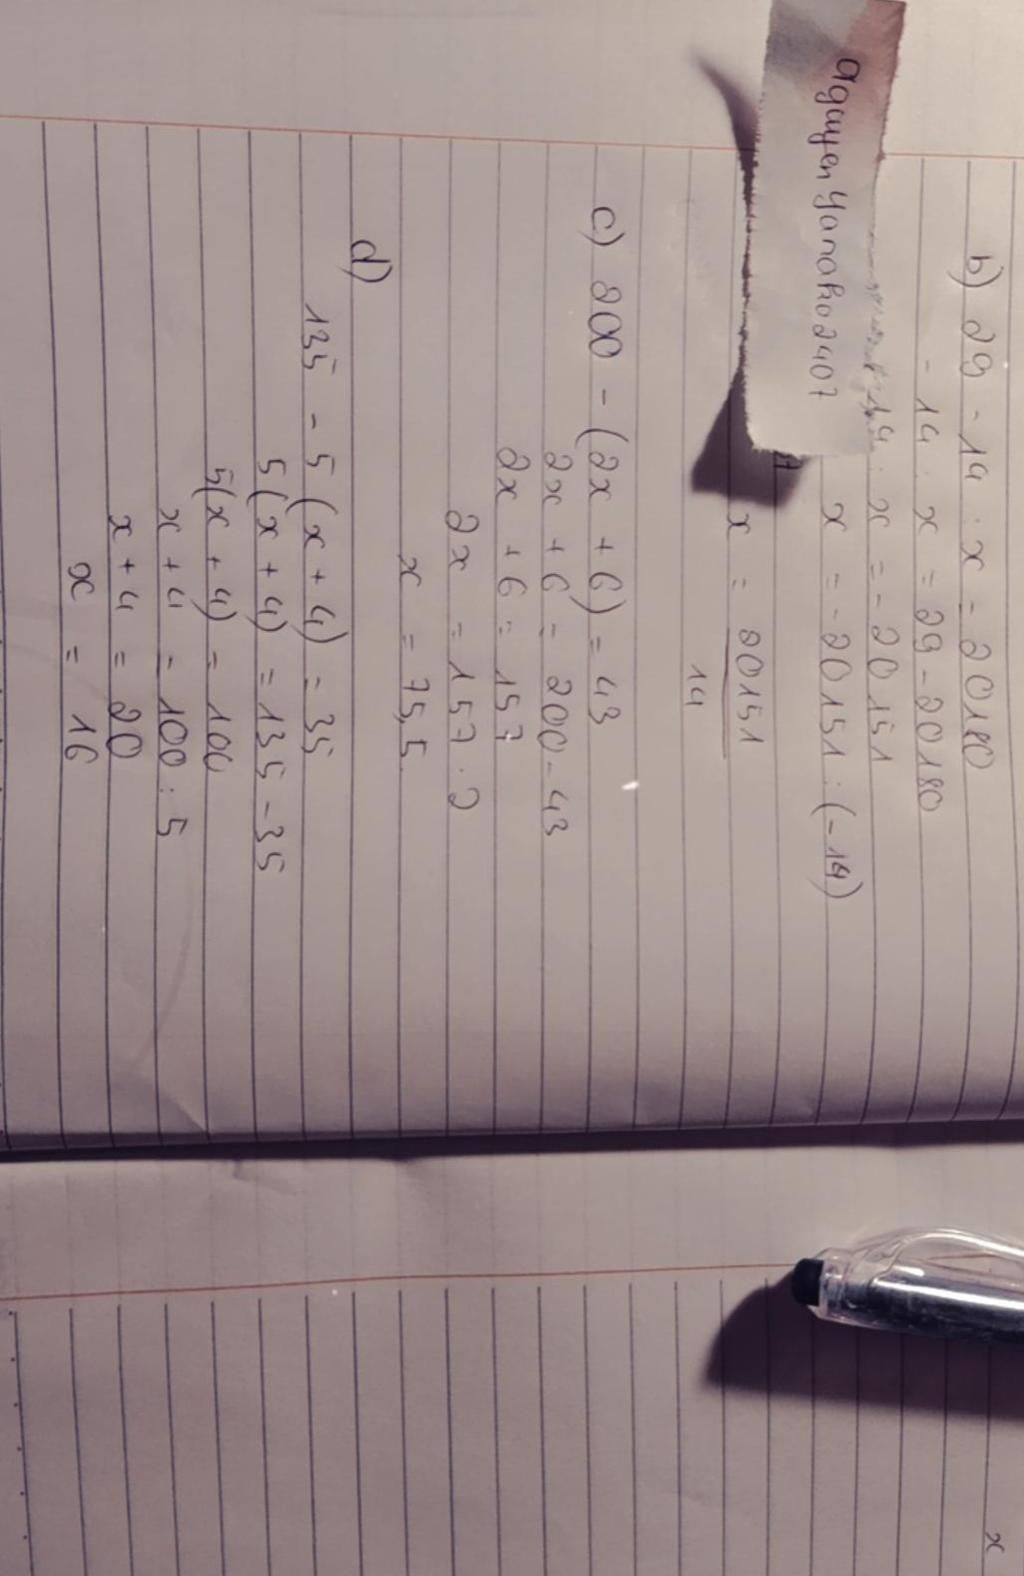 b) 29 - 14 . x = 20180
- 14 . x = 29 - 20180
14 . x = - 20151
x = - 20151 : (-14)
x = 20151
14
c) 200 - (2x + 6) = 43
2x + 6 = 200 - 43
2x + 6 = 157
2x = 157 . 2
x = 75,5
d)
135 - 5 (x + 4) = 35
5 (x + 4) = 135 - 35
5(x + 4) = 100
x + 4 = 100 : 5
x + 4 = 20
x = 16
x